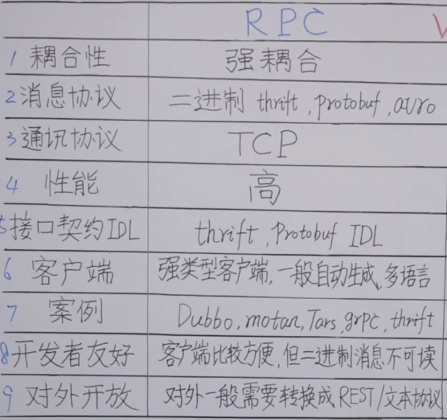 RPC V
1 耦合性 强耦合
2 消息协议 二进制 thrift, protobuf, avro
3 通讯协议 TCP
4 性能 高
5 接口契约IDL thrift, Protobuf IDL
6 客户端 强类型客户端,一般自动生成,多语言
7 案例 Dubbo, motan, Tars, grpc, thrift
8 开发者友好 客户端比较方便,但二进制消息不可读
9 对外开放 对外一般需要转换成REST/文本协议